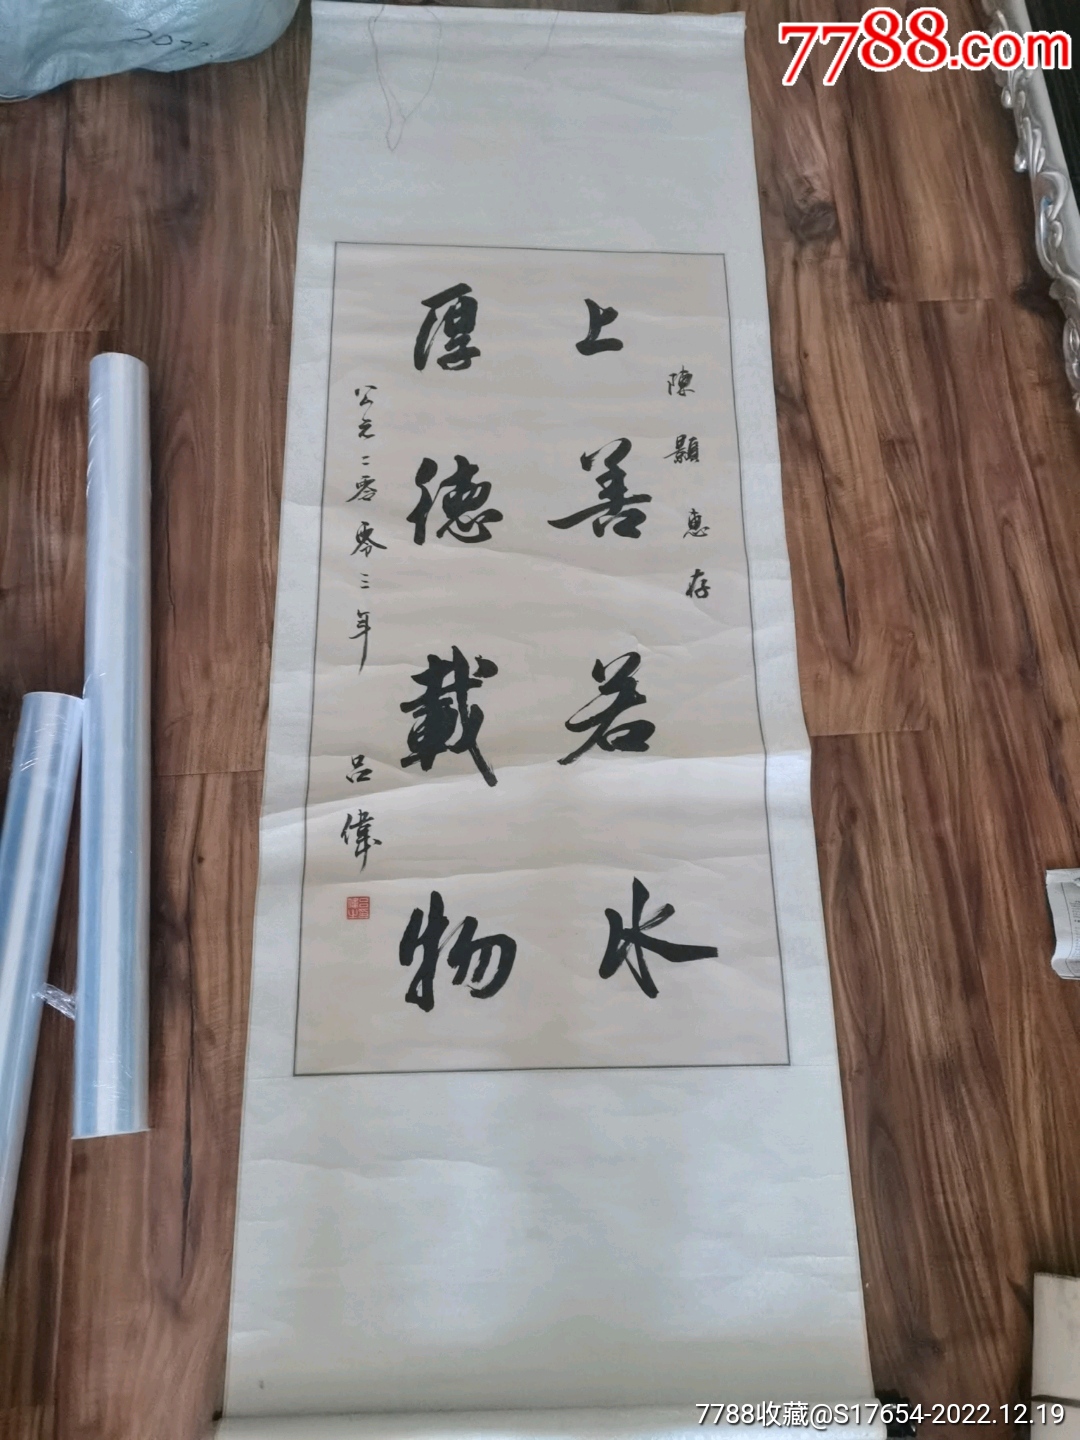 7788.com
陳顥惠存
上善若水
厚德載物
公元二零零三年 呂偉
7788收藏@S17654-2022.12.19